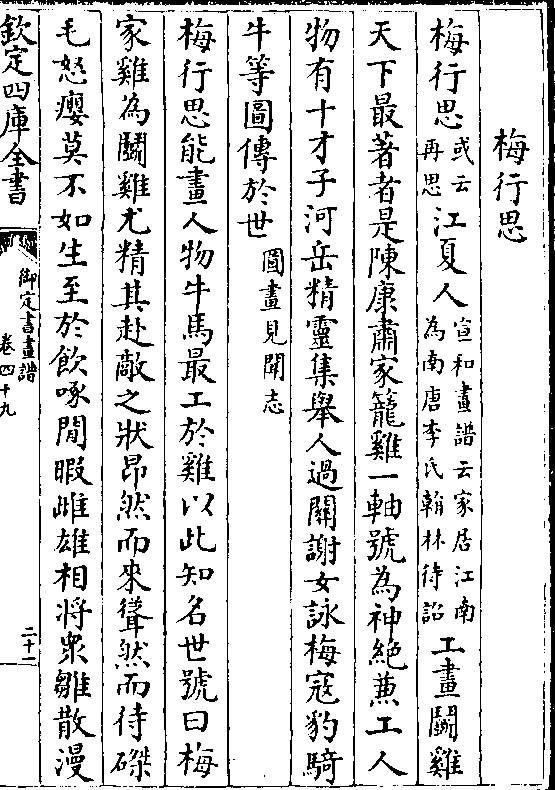 梅行思
梅行思或云再思江夏人宣和畫譜云家居江南為南唐李氏翰林待詔工畫鬬雞
天下最著者是陳康肅家籠雞一軸號為神絶兼工人
物有十才子河岳精靈集舉人過關謝女詠梅寇豹騎
牛等圖傳於世圖畫見聞志
梅行思能畫人物牛馬最工於雞以此知名世號曰梅
家雞為鬬雞尤精其赴敵之狀昂然而來聳然而待磔
毛怒癭莫不如生至於飲啄閒暇雌雄相將衆雛散漫
欽定四庫全書
御定書畫譜
卷四十九
二十一